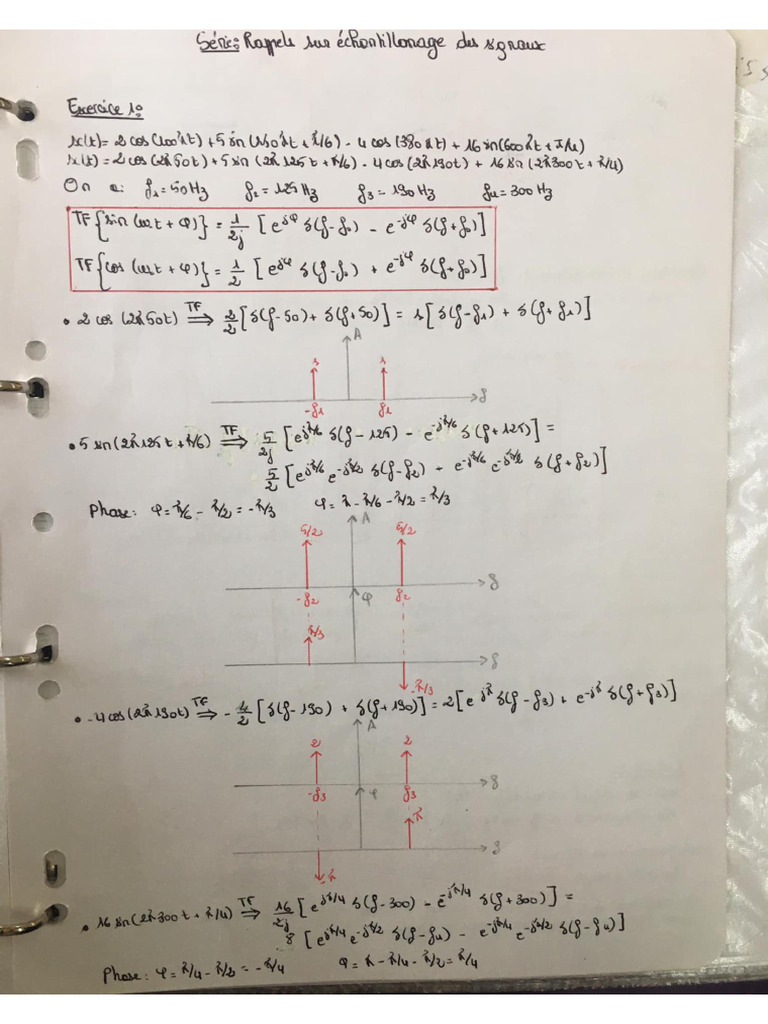 Série: Rappels sur échantillonage des signaux
Exercice 1:
x(t) = 2 cos(100πt) + 5 sin(250πt + π/6) - 4 cos(380πt) + 16 sin(600πt + π/4)
x(t) = 2 cos(2π50t) + 5 sin(2π125t + π/6) - 4 cos(2π190t) + 16 sin(2π300t + π/4)
On a: f1 = 50 Hz f2 = 125 Hz f3 = 190 Hz f4 = 300 Hz
TF{sin(ω0t + φ)} = 1/2j [e^jφ δ(f-f0) - e^-jφ δ(f+f0)]
TF{cos(ω0t + φ)} = 1/2 [e^jφ δ(f-f0) + e^-jφ δ(f+f0)]
• 2 cos(2π50t) TF⇒ 2/2 [δ(f-50) + δ(f+50)] = 1[δ(f-f1) + δ(f+f1)]
A
1 1
-f1 f1 f
• 5 sin(2π125t + π/6) TF⇒ 5/2j [e^jπ/6 δ(f-125) - e^-jπ/6 δ(f+125)] =
5/2 [e^jπ/6 e^-jπ/2 δ(f-f2) - e^-jπ/6 e^-jπ/2 δ(f+f2)]
Phase: φ = π/6 - π/2 = -π/3 φ = π - π/6 - π/2 = π/3
A
5/2 5/2
-f2 f2 f
φ
π/3
f
-π/3
• -4 cos(2π190t) TF⇒ -4/2 [δ(f-190) + δ(f+190)] = 2[e^jπ δ(f-f3) + e^-jπ δ(f+f3)]
A
2 2
-f3 f3 f
φ
π
f
-π
• 16 sin(2π300t + π/4) TF⇒ 16/2j [e^jπ/4 δ(f-300) - e^-jπ/4 δ(f+300)] =
8 [e^jπ/4 e^-jπ/2 δ(f-f4) - e^-jπ/4 e^-jπ/2 δ(f-f4)]
Phase: φ = π/4 - π/2 = -π/4 φ = π - π/4 - π/2 = π/4